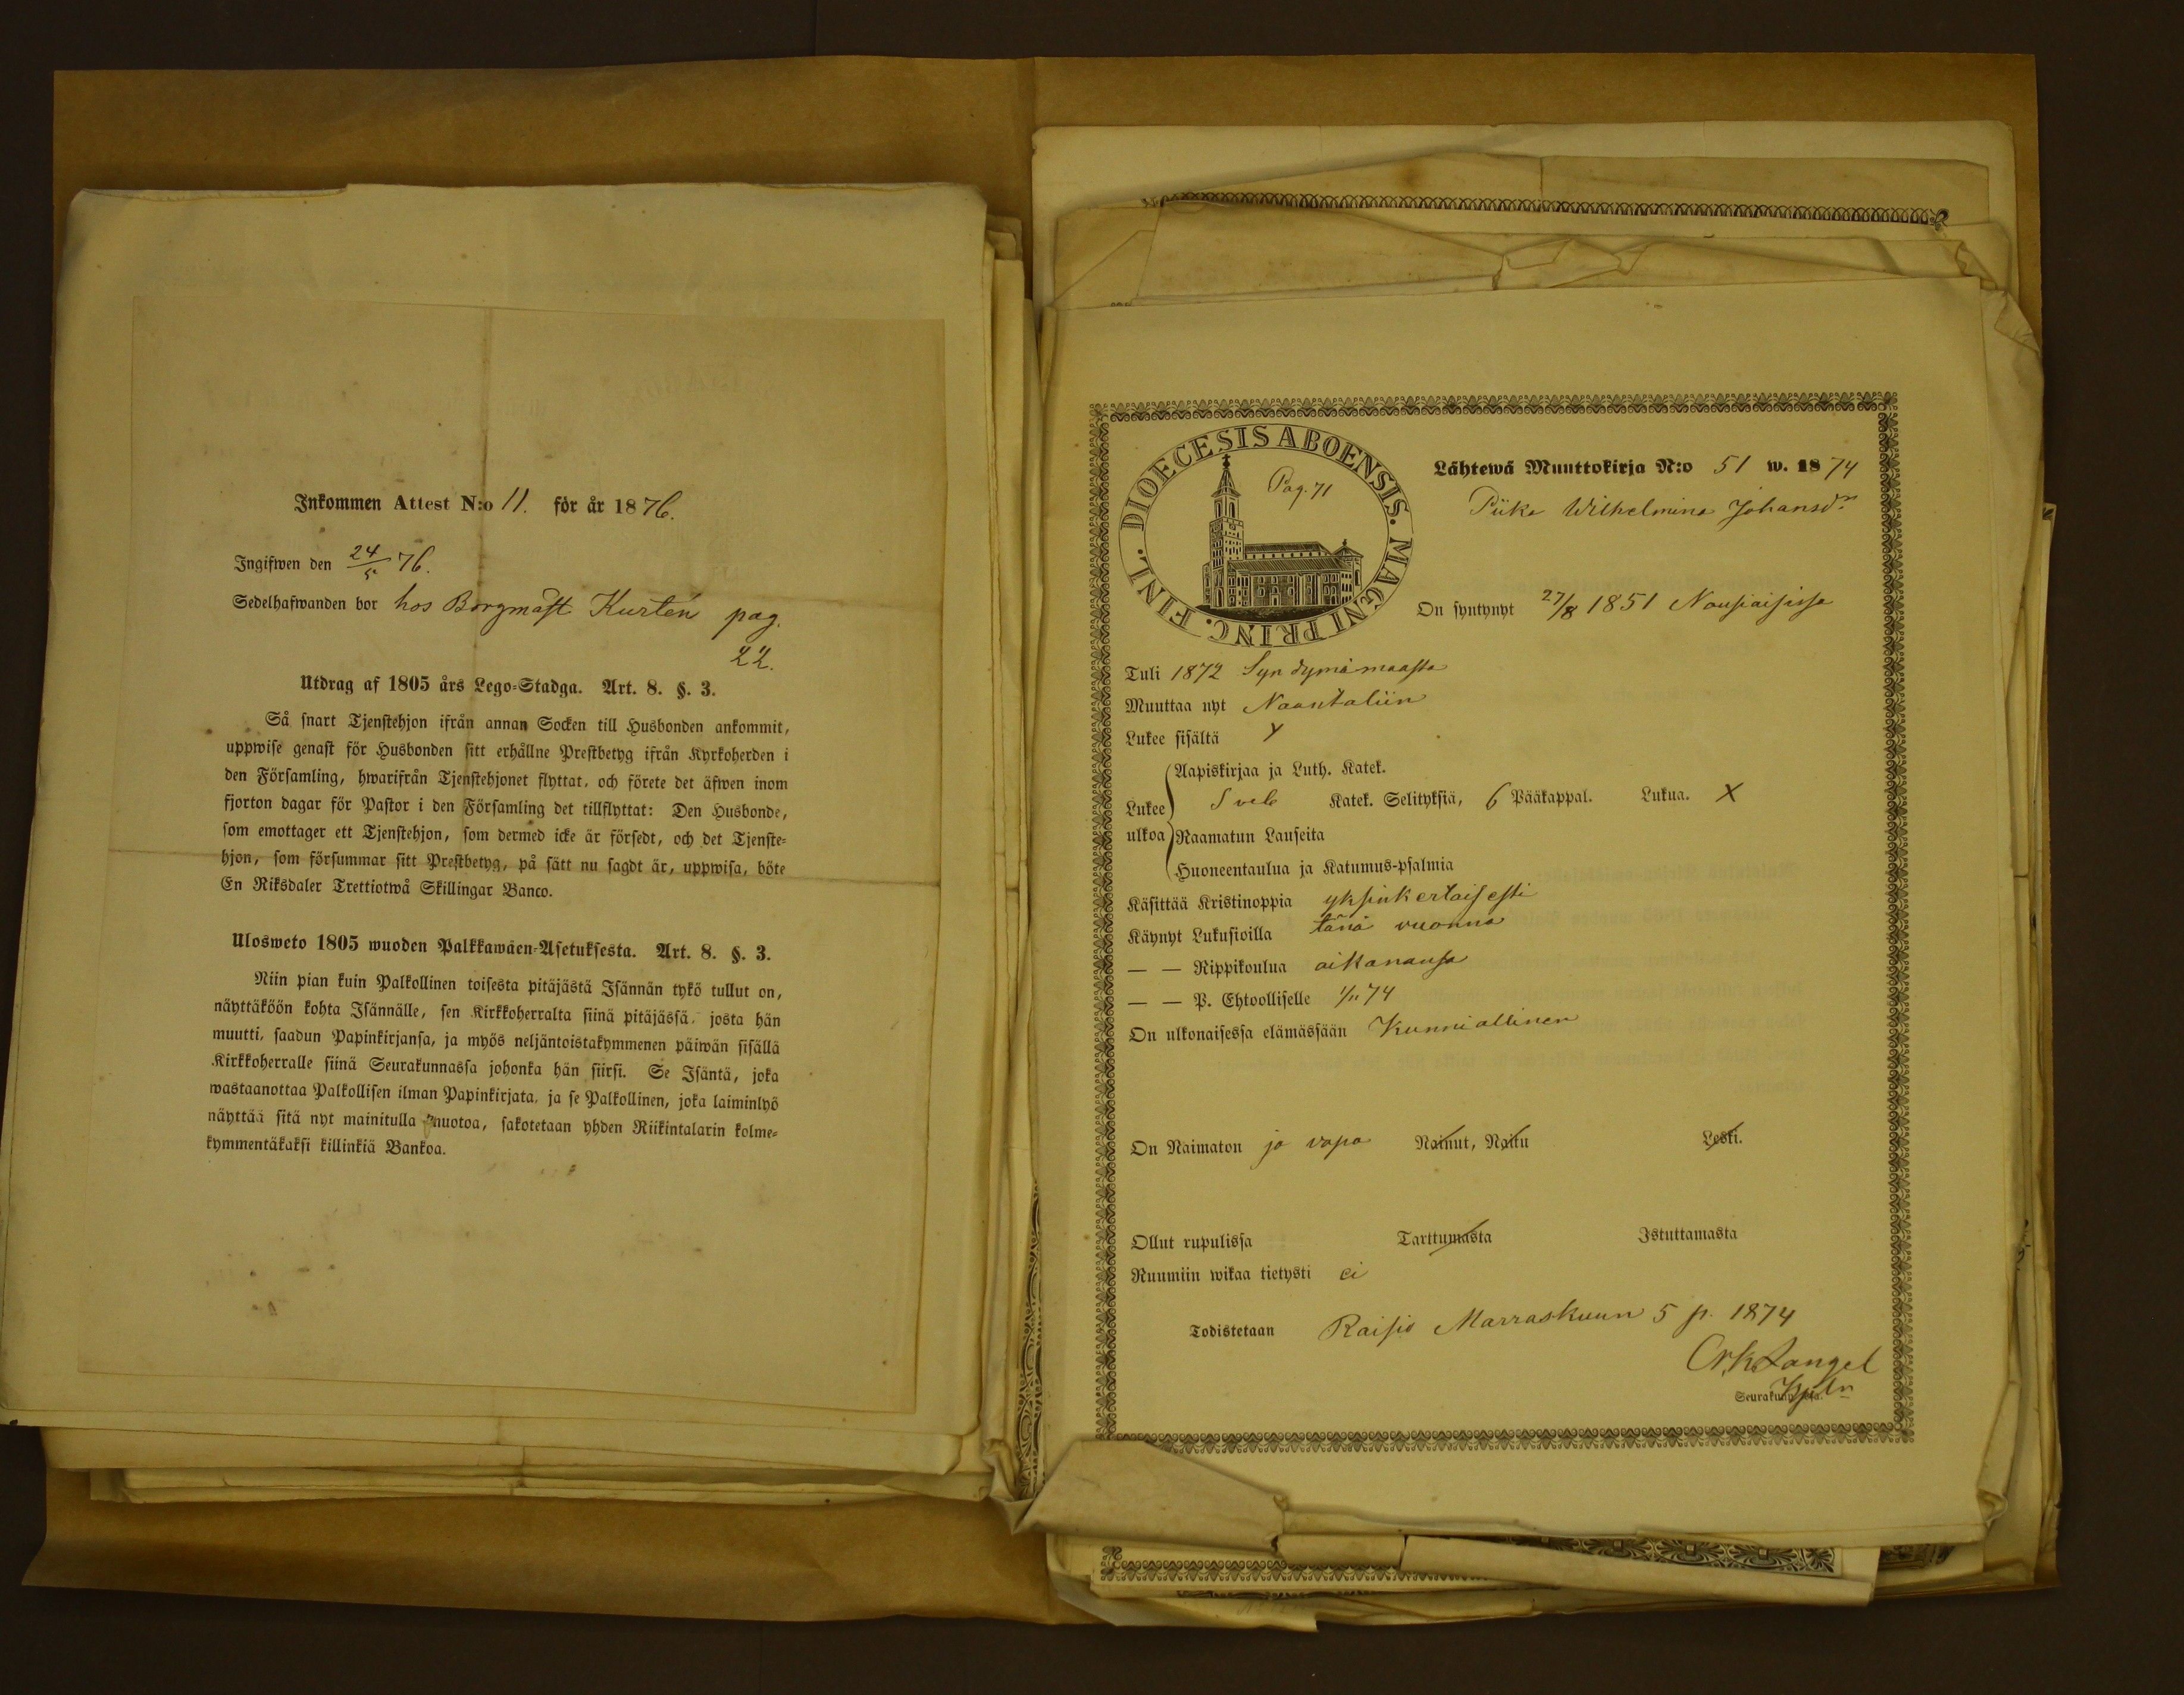 Inkommen Attest N:o 11. för år 1876.
Ingifwen den 24/5 76.
Sedelhafwanden bor hos Borgmäst Kurtén pag.
22.
Utdrag af 1805 års Lego-Stadga. Art. 8. §. 3.
Så snart Tjenstehjon ifrån annan Socken till Husbonden ankommit,
uppwise genast för Husbonden sitt erhållne Prestbetyg ifrån Kyrkoherden i
den Församling, hwarifrån Tjenstehjonet flyttat, och förete det äfwen inom
fjorton dagar för Pastor i den Församling det tillflyttat: Den Husbonde,
som emottager ett Tjenstehjon, som dermed icke är försedt, och det Tjenste-
hjon, som försummar sitt Prestbetyg, på sätt nu sagdt är, uppwisa, böte
En Riksdaler Trettiotwå Skillingar Banco.
Ulosweto 1805 wuoden Palkkawäen-Asetuksesta. Art. 8. §. 3.
Niin pian kuin Palkollinen toisesta pitäjästä Isännän tykö tullut on,
näyttäköön kohta Isännälle, sen Kirkkoherralta siinä pitäjässä, josta hän
muutti, saadun Papinkirjansa, ja myös neljäntoistakymmenen päiwän sisällä
Kirkkoherralle siinä Seurakunnassa johonka hän siirsi. Se Isäntä, joka
wastaanottaa Palkollisen ilman Papinkirjata, ja se Palkollinen, joka laiminlyö
näyttää sitä nyt mainitulla muotoa, sakotetaan yhden Riikintalarin kolme-
kymmentäkaksi killinkiä Bankoa.
DIOECESIS ABOENSIS. MAGNI PRINC. FINL.
Pag. 71
Lähtewä Muuttokirja N:o 51 w. 1874
Piika Wilhelmina Johansdr
On syntynyt 27/8 1851 Nousiaisissa
Tuli 1872 Syndymämaasta
Muuttaa nyt Naantaliin
Lukee sisältä Y
Aapiskirjaa ja Luth. Katek.
Lukee ulkoa Sveb Katek. Selityksiä, 6 Pääkappal. Lukua. X
Raamatun Lauseita
Huoneentaulua ja Katumus-psalmia
Käsittää Kristinoppia yksinkertaisesti
Käynyt Lukusioilla tänä vuonna
— — Rippikoulua aikanansa
— — P. Ehtoolliselle 1/11 74
On ulkonaisessa elämässään Kunniallinen
On Naimaton ja vapa Nainut, Naitu Leski.
Ollut rupulissa Tarttumasta Istuttamasta
Ruumiin wikaa tietysti ei
Todistetaan Raisio Marraskuun 5 p. 1874